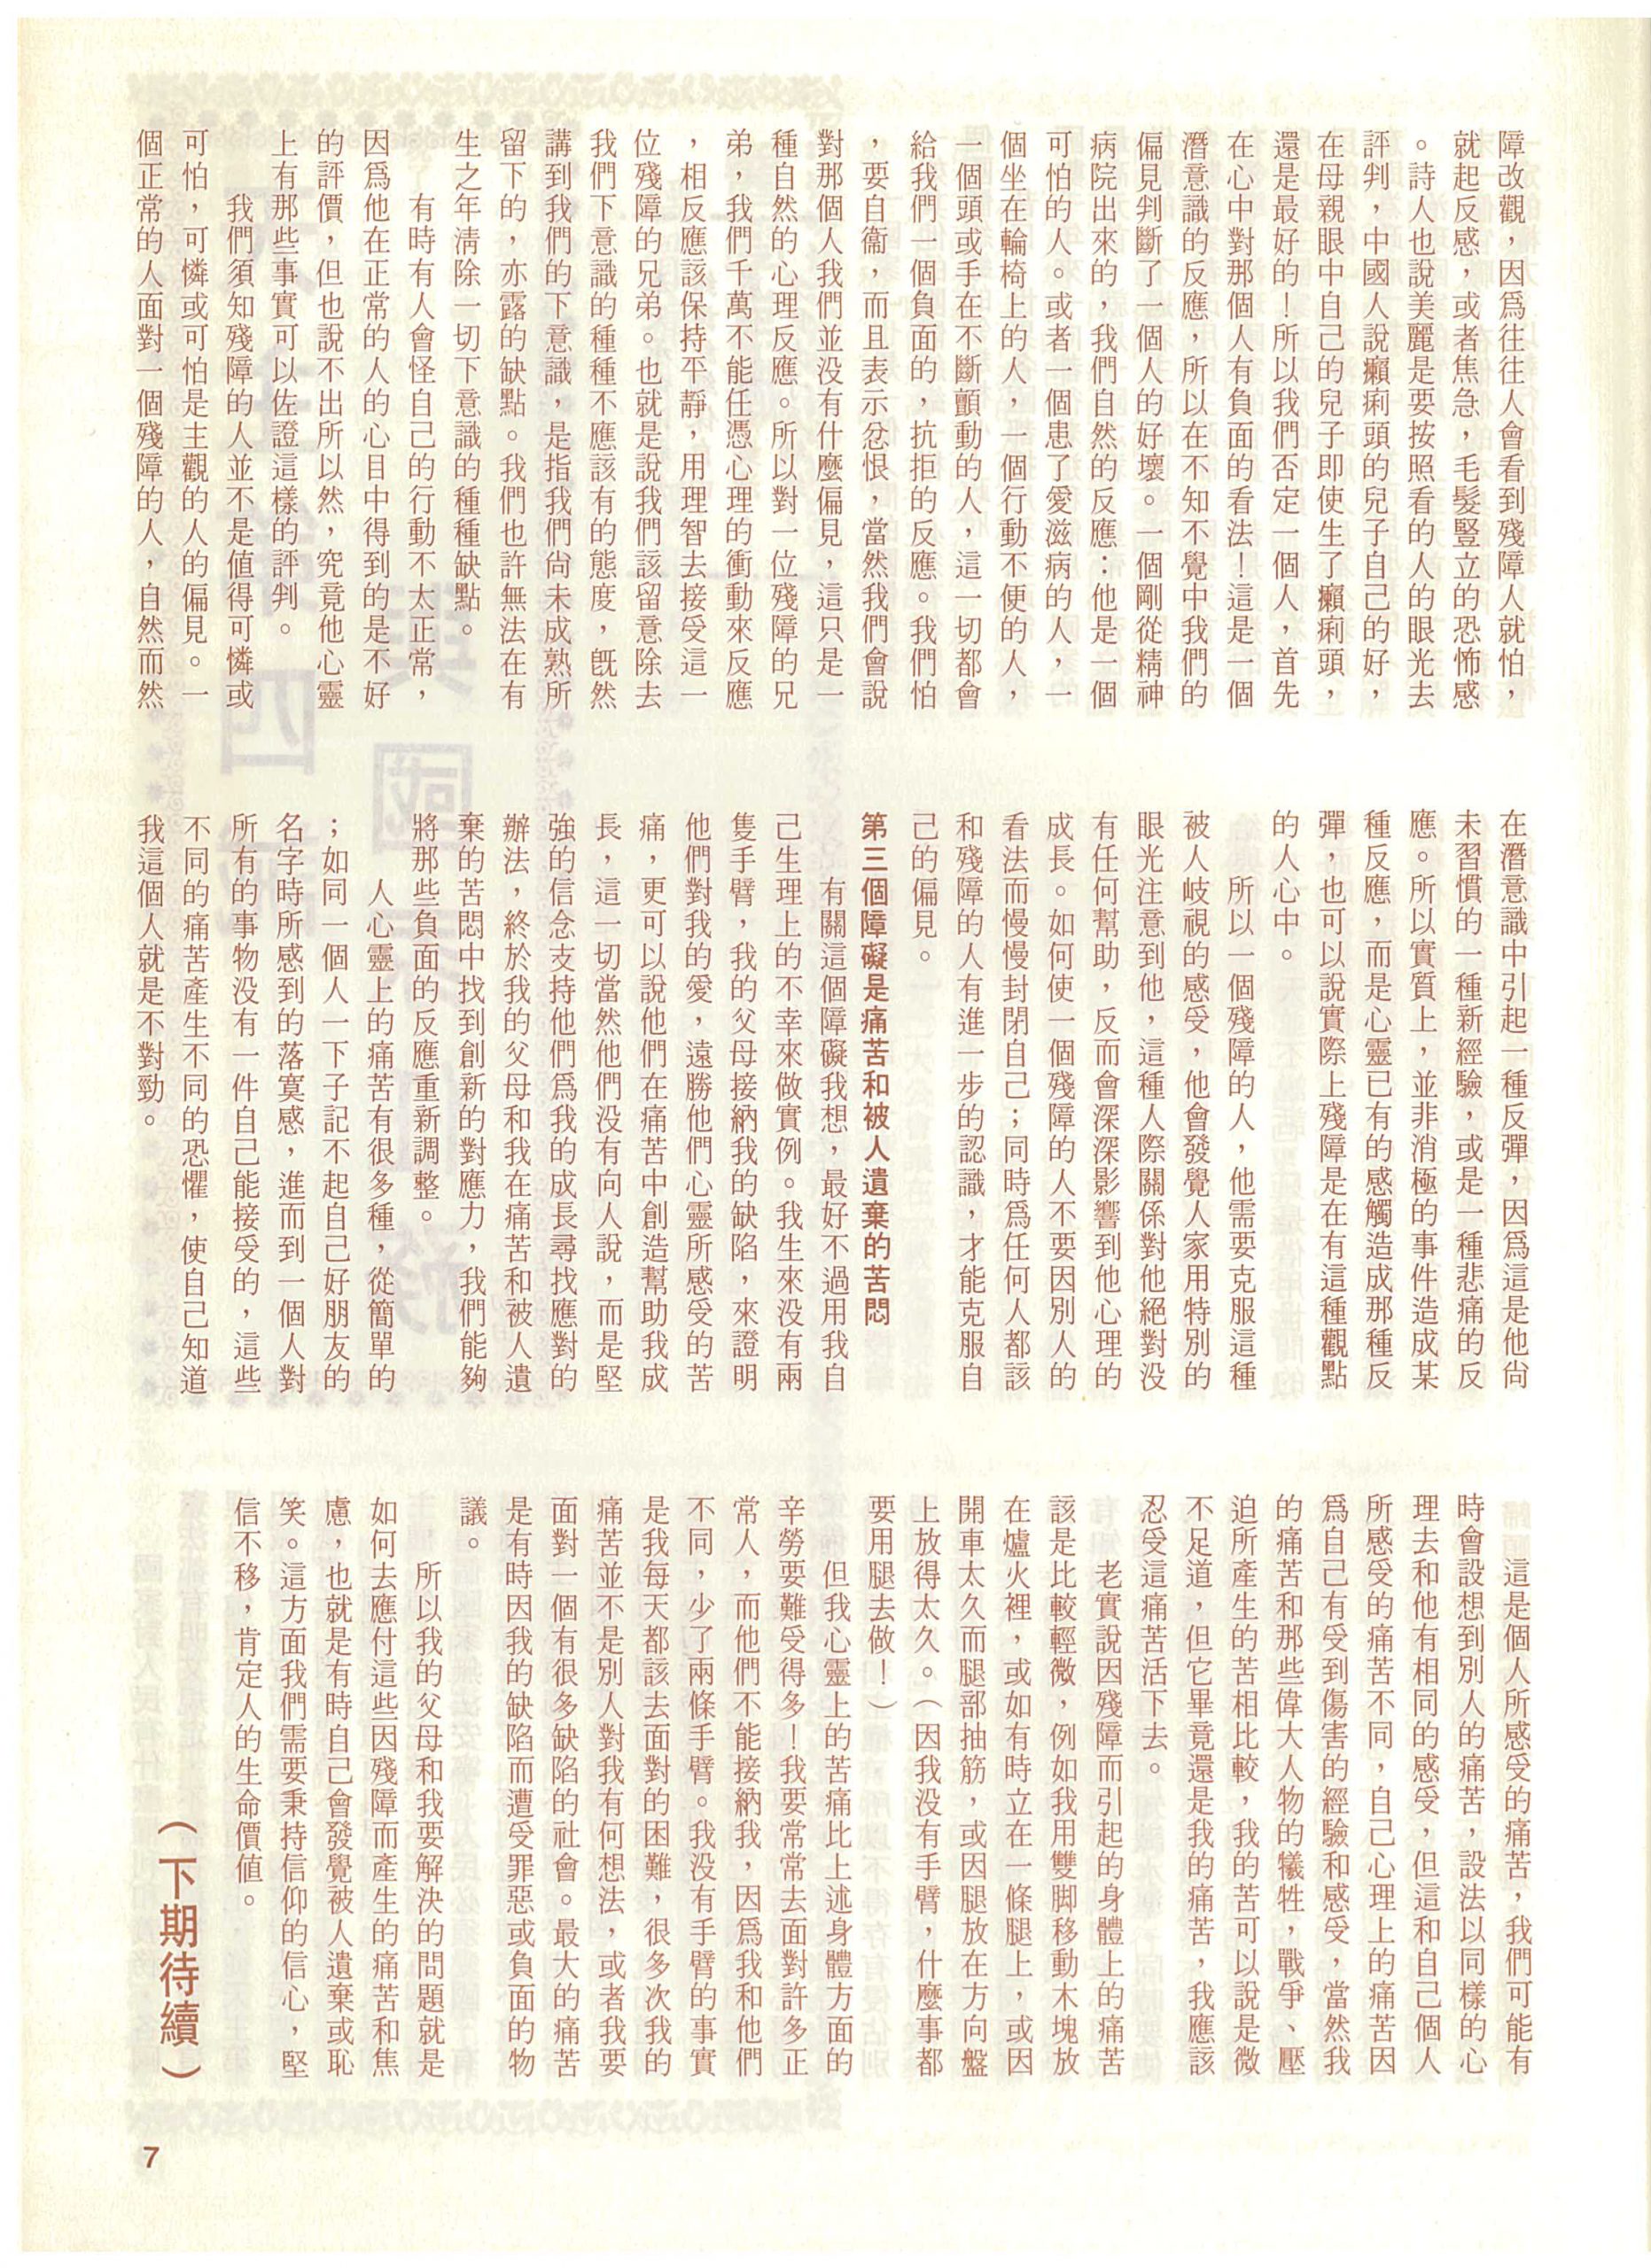 障改觀，因爲往往人會看到殘障人就怕，
就起反感，或者焦急，毛髮豎立的恐怖感
。詩人也說美麗是要按照看的人的眼光去
評判，中國人說癩痢頭的兒子自己的好，
在母親眼中自己的兒子即使生了癩痢頭，
還是最好的！所以我們否定一個人，首先
在心中對那個人有負面的看法！這是一個
潛意識的反應，所以在不知不覺中我們的
偏見判斷了一個人的好壞。一個剛從精神
病院出來的，我們自然的反應：他是一個
可怕的人。或者一個患了愛滋病的人，一
個坐在輪椅上的人，一個行動不便的人，
一個頭或手在不斷顫動的人，這一切都會
給我們一個負面的，抗拒的反應。我們怕
，要自衞，而且表示忿恨，當然我們會說
對那個人我們並没有什麼偏見，這只是一
種自然的心理反應。所以對一位殘障的兄
弟，我們千萬不能任憑心理的衝動來反應
，相反應該保持平靜，用理智去接受這一
位殘障的兄弟。也就是說我們該留意除去
我們下意識的種種不應該有的態度，旣然
講到我們的下意識，是指我們尙未成熟所
留下的，亦露的缺點。我們也許無法在有
生之年淸除一切下意識的種種缺點。
有時有人會怪自己的行動不太正常，
因爲他在正常的人的心目中得到的是不好
的評價，但也說不出所以然，究竟他心靈
上有那些事實可以佐證這樣的評判。
我們須知殘障的人並不是値得可憐或
可怕，可憐或可怕是主觀的人的偏見。一
個正常的人面對一個殘障的人，自然而然
在潛意識中引起一種反彈，因爲這是他尙
未習慣的一種新經驗，或是一種悲痛的反
應。所以實質上，並非消極的事件造成某
種反應，而是心靈已有的感觸造成那種反
彈，也可以說實際上殘障是在有這種觀點
的人心中。
所以一個殘障的人，他需要克服這種
被人岐視的感受，他會發覺人家用特別的
眼光注意到他，這種人際關係對他絕對没
有任何幫助，反而會深深影響到他心理的
成長。如何使一個殘障的人不要因別人的
看法而慢慢封閉自己；同時爲任何人都該
和殘障的人有進一步的認識，才能克服自
己的偏見。
第三個障礙是痛苦和被人遺棄的苦悶
有關這個障礙我想，最好不過用我自
己生理上的不幸來做實例。我生來没有兩
隻手臂，我的父母接納我的缺陷，來證明
他們對我的愛，遠勝他們心靈所感受的苦
痛，更可以說他們在痛苦中創造幫助我成
長，這一切當然他們没有向人說，而是堅
強的信念支持他們爲我的成長尋找應對的
辦法，終於我的父母和我在痛苦和被人遺
棄的苦悶中找到創新的對應力，我們能夠
將那些負面的反應重新調整。
人心靈上的痛苦有很多種，從簡單的
；如同一個人一下子記不起自己好朋友的
名字時所感到的落寞感，進而到一個人對
所有的事物没有一件自己能接受的，這些
不同的痛苦產生不同的恐懼，使自己知道
我這個人就是不對勁。
這是個人所感受的痛苦，我們可能有
時會設想到別人的痛苦，設法以同樣的心
理去和他有相同的感受，但這和自己個人
所感受的痛苦不同，自己心理上的痛苦因
爲自己有受到傷害的經驗和感受，當然我
的痛苦和那些偉大人物的犧牲，戰爭、壓
迫所產生的苦相比較，我的苦可以說是微
不足道，但它畢竟還是我的痛苦，我應該
忍受這痛苦活下去。
老實說因殘障而引起的身體上的痛苦
該是比較輕微，例如我用雙脚移動木塊放
在爐火裡，或如有時立在一條腿上，或因
開車太久而腿部抽筋，或因腿放在方向盤
上放得太久。（因我没有手臂，什麼事都
要用腿去做！）
但我心靈上的苦痛比上述身體方面的
辛勞要難受得多！我要常常去面對許多正
常人，而他們不能接納我，因爲我和他們
不同，少了兩條手臂。我没有手臂的事實
是我每天都該去面對的困難，很多次我的
痛苦並不是別人對我有何想法，或者我要
面對一個有很多缺陷的社會。最大的痛苦
是有時因我的缺陷而遭受罪惡或負面的物
議。
所以我的父母和我要解決的問題就是
如何去應付這些因殘障而產生的痛苦和焦
慮，也就是有時自己會發覺被人遺棄或恥
笑。這方面我們需要秉持信仰的信心，堅
信不移，肯定人的生命價値。
（下期待續）
7